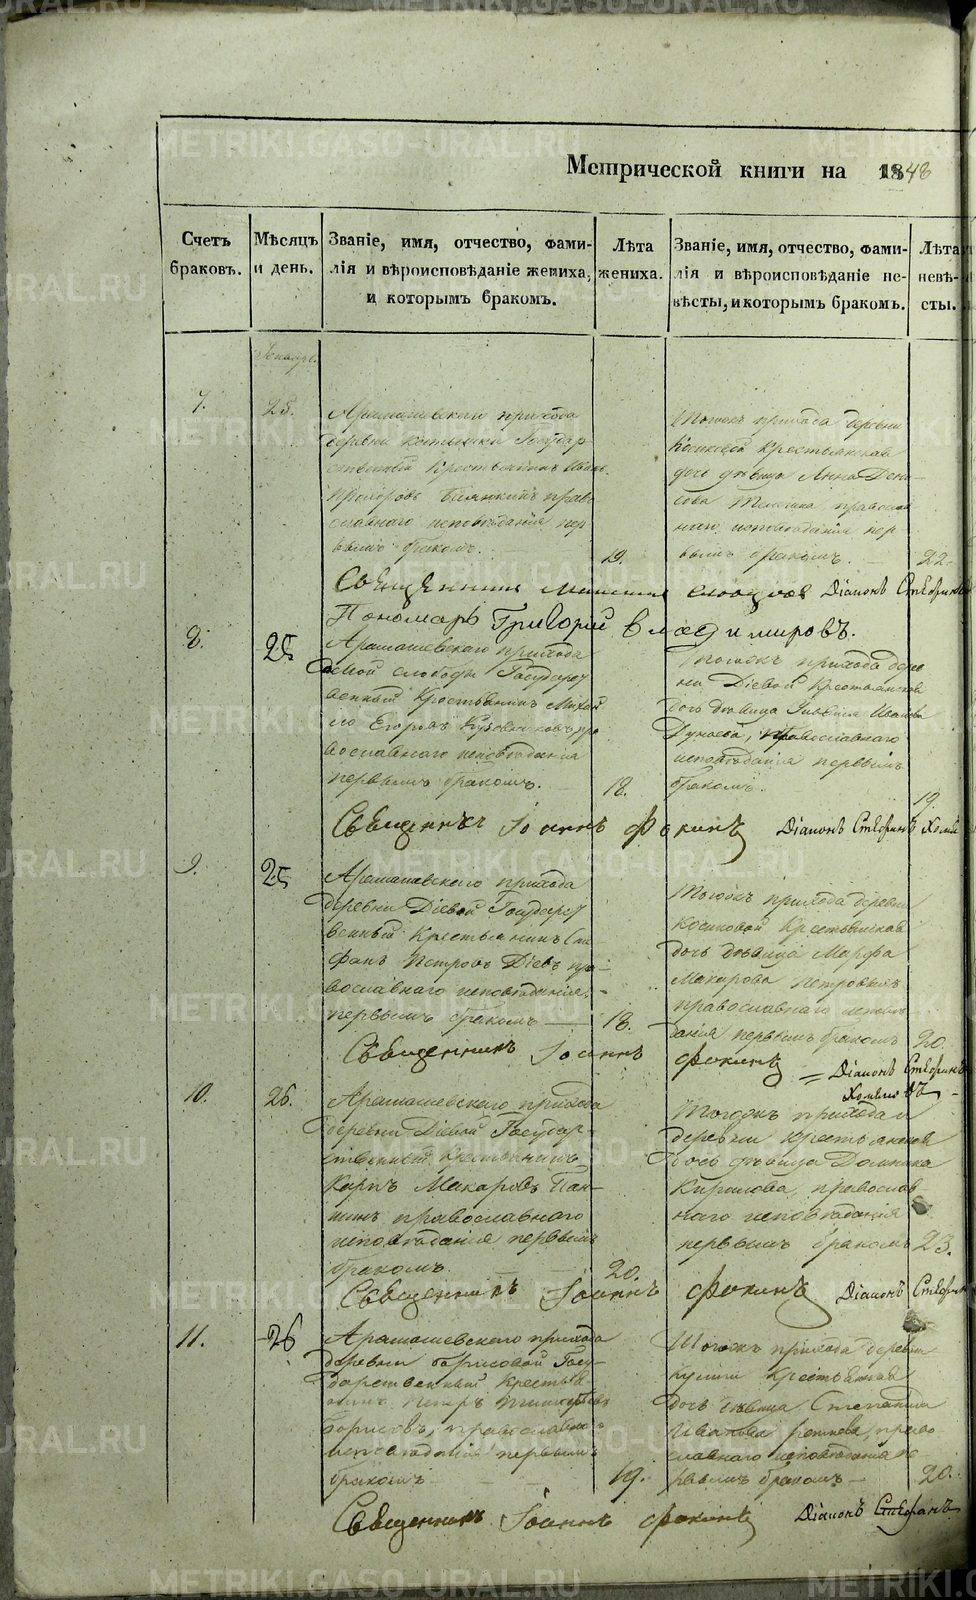 METRIKI.GASO-URAL.RU
Метрической книги на 1848
Счетъ браковъ.
Мѣсяцъ и день.
Званіе, имя, отчество, фами-
лія и вѣроисповѣданіе жениха,
и которымъ бракомъ.
Лѣта жениха.
Званіе, имя, отчество, фами-
лія и вѣроисповѣданіе не-
вѣсты, и которымъ бракомъ.
Лѣта невѣ-
сты.
7.
25.
Арамашевскаго прихода
деревни Государ-
ственный Крестьянинъ Иванъ
Прохоровъ право-
славнаго исповѣданія пер
вымъ бракомъ.
19.
Тогожъ прихода деревни
Косиковой Крестьянская
дочь дѣвица Анна Дени-
сова православ
наго исповѣданія пер
вымъ бракомъ.
22.
Священникъ Діаконъ Стефанъ
Пономарь Григорій Владимировъ.
8.
25
Арамашевскаго прихода
самой слободы Государст
венный Крестьянинъ Михай
ло Егоровъ пра
вославнаго исповѣданія
первымъ бракомъ.
18.
Тогожъ прихода дерев
ни Діевой Крестьянская
дочь дѣвица Иванова
Дунаева, православнаго
исповѣданія первымъ
бракомъ.
19.
Священникъ Іоаннъ Фокинъ Діаконъ Стефанъ
9.
25
Арамашевскаго прихода
деревни Діевой Государст
венный Крестьянинъ Сте-
фанъ Петровъ Діевъ пра-
вославнаго исповѣданія,
первымъ бракомъ
18.
Тогожъ прихода деревни
Косиковой Крестьянская
дочь дѣвица Марфа
Макарова Петровыхъ
православнаго исповѣ
данія первымъ бракомъ
20.
Священникъ Іоаннъ Фокинъ
Діаконъ Стефанъ
10.
26.
Арамашевскаго прихода
деревни Діевой Государ-
ственный Крестьянинъ
Карпъ Макаровъ Пан-
шинъ православнаго
исповѣданія первымъ
бракомъ.
20.
Тогожъ прихода и
деревни Крестьянская
дочь дѣвица Домника
Кирилова, православ-
наго исповѣданія
первымъ бракомъ
23.
Священникъ Іоаннъ Фокинъ Діаконъ Стефанъ
11.
26
Арамашевскаго прихода
деревни Борисовой Госу-
дарственный Крестья
нинъ Петръ
Борисовъ, православнаго
исповѣданія первымъ
бракомъ
19.
Тогожъ прихода деревни
Крестьянская
дочь дѣвица Степанида
Иванова право
славнаго исповѣданія пе
рвымъ бракомъ
20.
Священникъ Іоаннъ Фокинъ Діаконъ Стефанъ